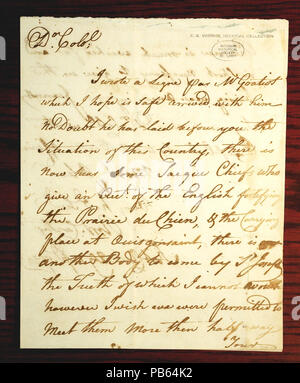 Dr Colo;
I wrote a Ligne par Mr Gratiot
which I hope is safe arrived with him
no Doubt he has laid before you the
Situation of the Country, there is
now here Some Jaques Chiefs who
give an Acct. of the English fortifying
the Prairie du Chien, & the Carrying
place at Ouisconsaint, there is
another Body to come by St Joseph
the Truth of which I cannot
however I wish we were permitted to
meet them more then half way
Your
alamy
Image ID: PB64K2
www.alamy.com